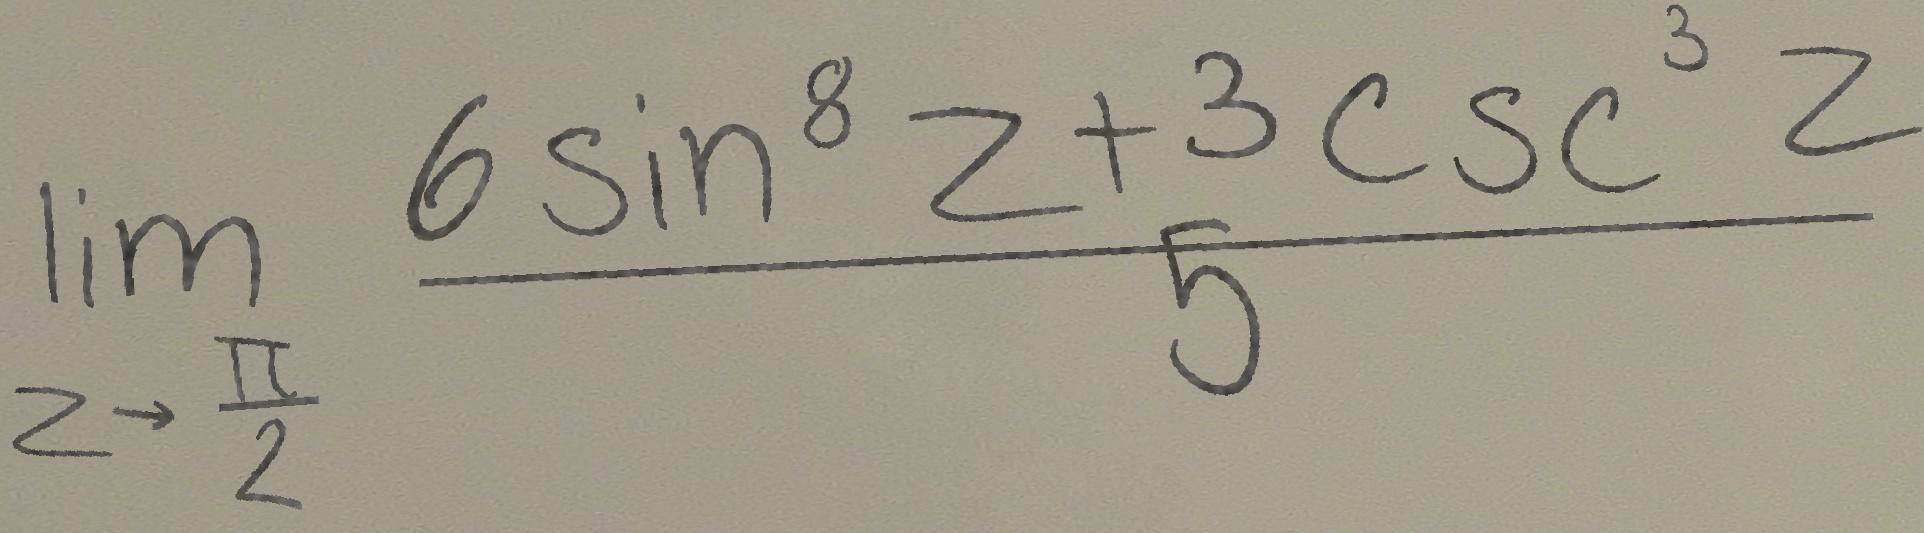 lim z→π/2 (6 sin⁸ z + 3 csc³ z)/5